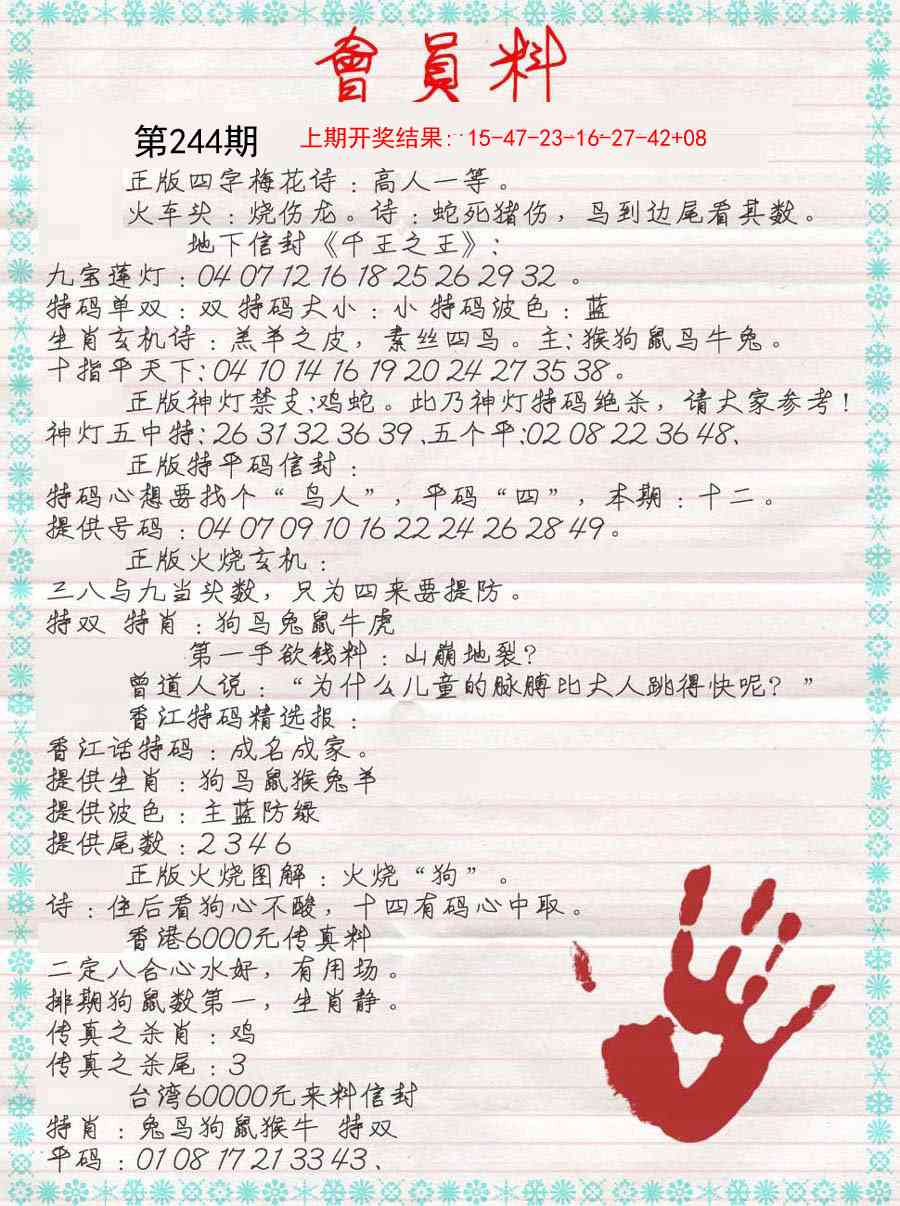 會員料
第244期 上期开奖结果：15-47-23-16-27-42+08
正版四字梅花诗：高人一等。
火车头：烧伤龙。诗：蛇死猪伤，鸟到边尾看其数。
地下信封《千王之王》：
九宝莲灯：04 07 12 16 18 25 26 29 32 。
特码单双：双 特码大小：小 特码波色：蓝
生肖玄机诗：羔羊之皮，素丝四马。主：猴狗鼠马牛兔。
十指平天下：04 10 14 16 19 20 24 27 35 38 。
正版神灯禁支：鸡蛇。此乃神灯特码绝杀，请大家参考！
神灯五中特：26 31 32 36 39 、五个平：02 08 22 36 48、
正版特平码信封：
特码心想要找个“鸟人”，平码“四”，本期：十二。
提供号码：04 07 09 10 16 22 24 26 28 49。
正版火烧玄机：
三八与九当头数，只为四来要提防。
特双 特肖：狗马兔鼠牛虎
第一手欲钱料：山崩地裂？
曾道人说：“为什么儿童的脉膊比大人跳得快呢？”
香江特码精选报：
香江话特码：成名成家。
提供生肖：狗马鼠猴兔羊
提供波色：主蓝防绿
提供尾数：2 3 4 6
正版火烧图解：火烧“狗”。
诗：住后看狗心不酸，十四有码心中取。
香港6000元传真料
二定八合心水好，有用场。
排期狗鼠数第一，生肖静。
传真之杀肖：鸡
传真之杀尾：3
台湾60000元来料信封
特肖：兔马狗鼠猴牛 特双
平码：01 08 17 21 33 43 、